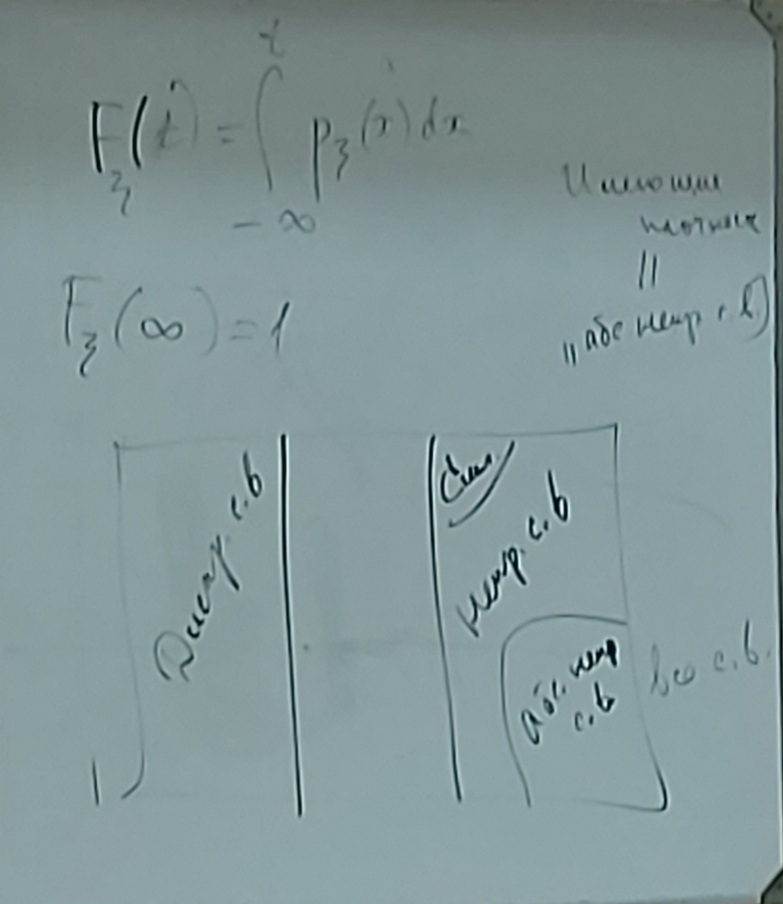 F_ξ(t) = ∫_{-∞}^{t} p_ξ(x) dx
Имеющие
плотность
||
„абс непр с.в.)
F_ξ(∞) = 1
Дискр. с.в
Синг.
непр. с.в
абс. непр
с.в
все с.в.